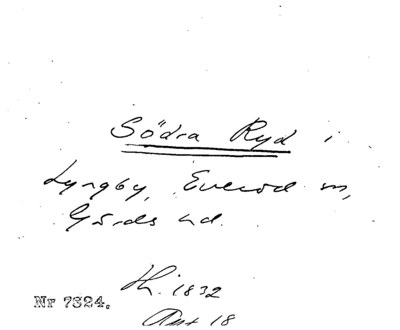 Södra Ryd i
Lyngby, Everöd m,
Gärds hd.
Hi. 1832
Nr 7324.
Ant 18